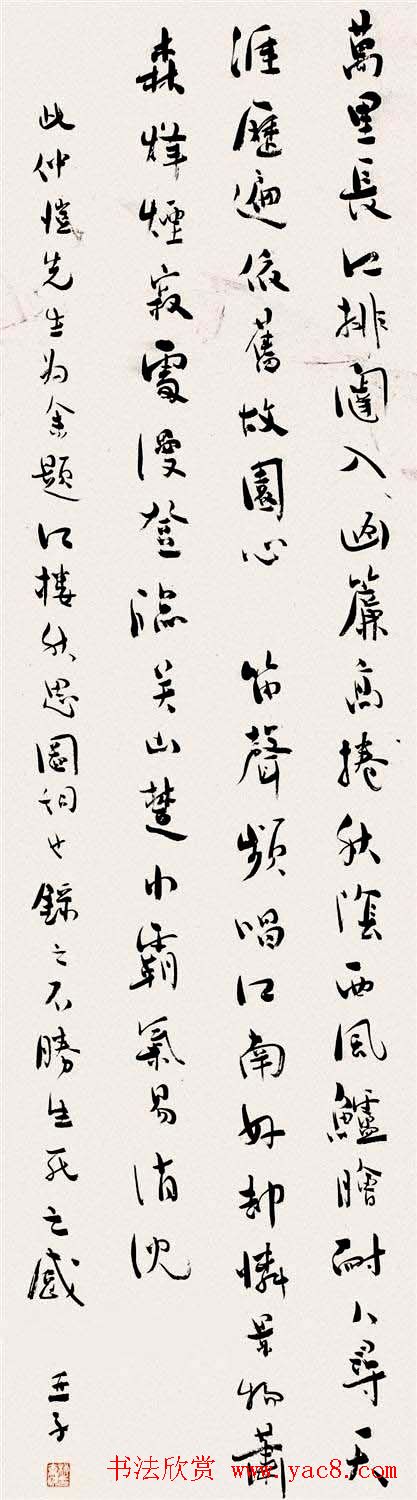 萬里長江排闥入画簾高捲秋陰西風鱸膾耐人尋天
涯歷遍依舊故園心 笛聲頻唱江南好却憐景物蕭
森烽煙寂處漫登臨吴山楚水霸氣易消沈
此仲愷先生为余題江樓秋思圖詞也錄之不勝生死之感 亞子
书法欣赏 www.yac8.com